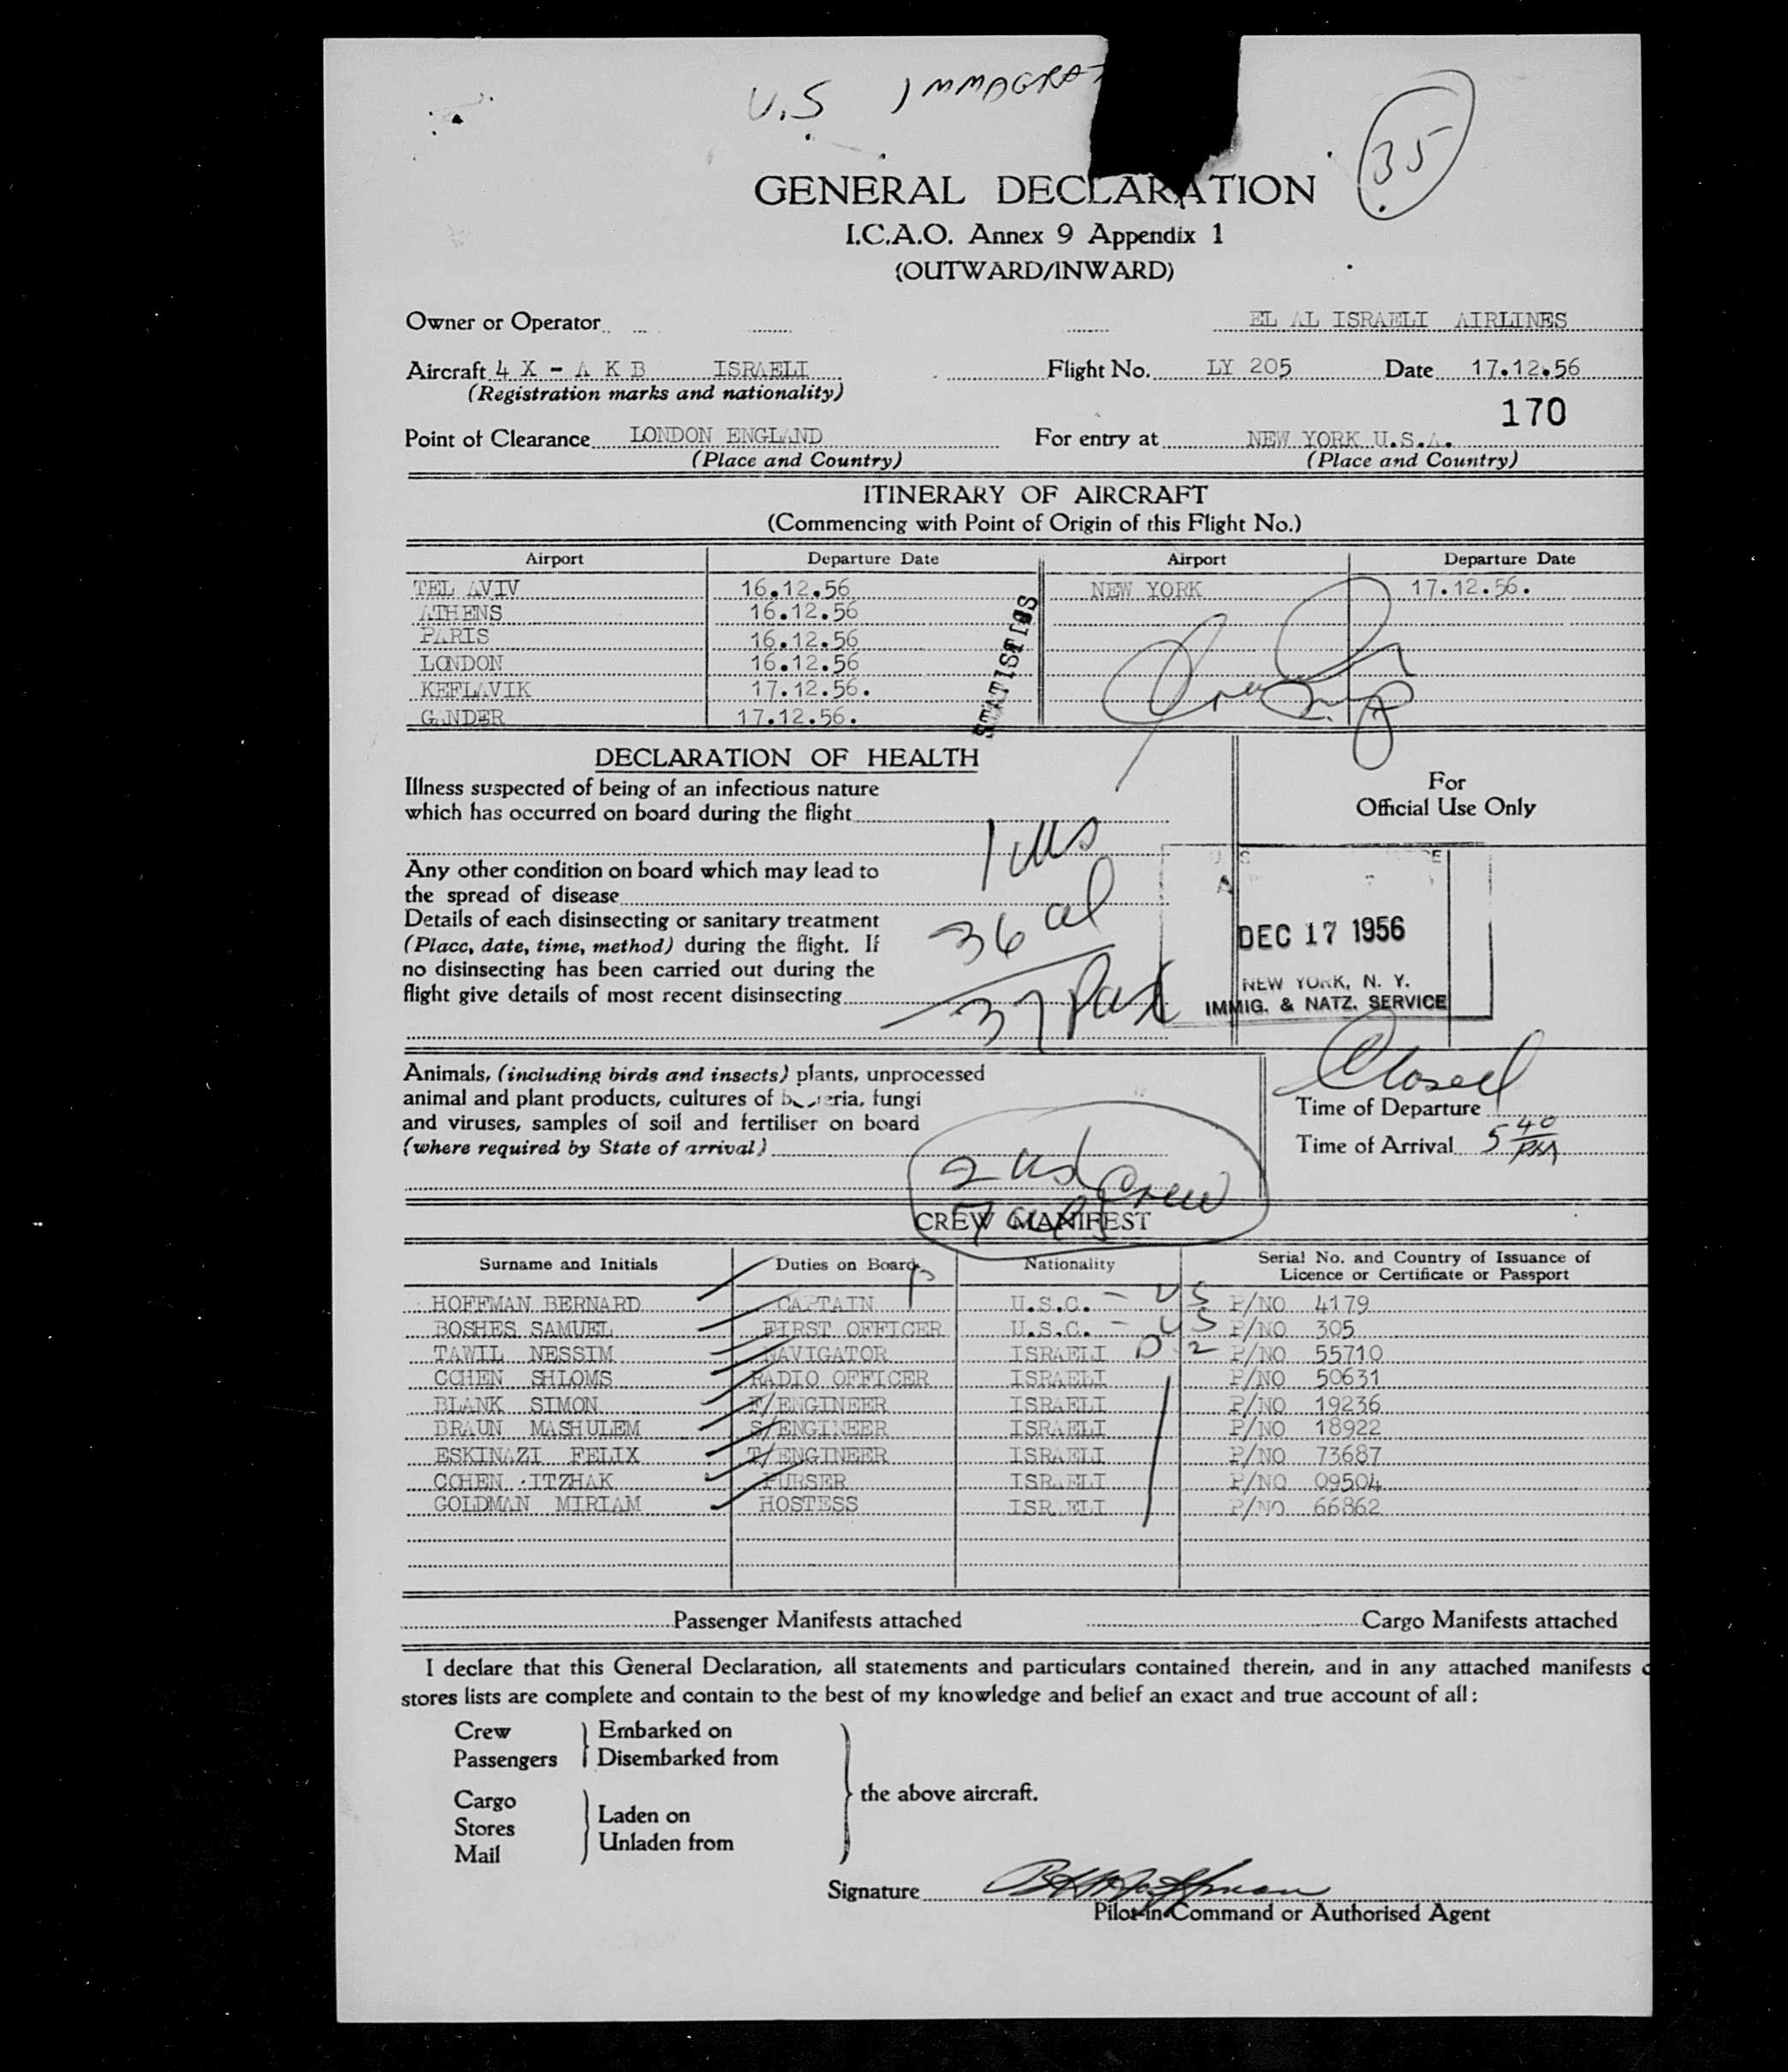 U.S IMMAGRAT
35
GENERAL DECLARATION
I.C.A.O. Annex 9 Appendix 1
(OUTWARD/INWARD)
Owner or Operator EL AL ISRAELI AIRLINES
Aircraft 4 X - A K B ISRAELI Flight No. LY 205 Date 17.12.56
(Registration marks and nationality)
170
Point of Clearance LONDON ENGLAND For entry at NEW YORK U.S.A.
(Place and Country) (Place and Country)
ITINERARY OF AIRCRAFT
(Commencing with Point of Origin of this Flight No.)
Airport Departure Date Airport Departure Date
TEL AVIV 16.12.56 NEW YORK 17.12.56.
ATHENS 16.12.56
PARIS 16.12.56
LONDON 16.12.56
KEFLAVIK 17.12.56.
GANDER 17.12.56.
STATISTICS
DECLARATION OF HEALTH
Illness suspected of being of an infectious nature
which has occurred on board during the flight
For
Official Use Only
1 us
Any other condition on board which may lead to
the spread of disease
36 al
Details of each disinsecting or sanitary treatment
(Place, date, time, method) during the flight. If
no disinsecting has been carried out during the
flight give details of most recent disinsecting
37 Pax
DEC 17 1956
NEW YORK, N. Y.
IMMIG. & NATZ. SERVICE
Closed
Animals, (including birds and insects) plants, unprocessed
animal and plant products, cultures of bacteria, fungi
and viruses, samples of soil and fertiliser on board
(where required by State of arrival)
Time of Departure
Time of Arrival 5 40 PM
2 us
7 al
Crew
CREW MANIFEST
Surname and Initials Duties on Board Nationality Serial No. and Country of Issuance of
Licence or Certificate or Passport
HOFFMAN BERNARD CAPTAIN U.S.C. - US P/NO 4179
BOSHES SAMUEL FIRST OFFICER U.S.C. - US P/NO 305
TAWIL NESSIM NAVIGATOR ISRAELI D-2 P/NO 55710
COHEN SHLOMS RADIO OFFICER ISRAELI P/NO 50631
BLANK SIMON F/ENGINEER ISRAELI P/NO 19236
BRAUN MASHULEM S/ENGINEER ISRAELI P/NO 18922
ESKINAZI FELIX T/ENGINEER ISRAELI P/NO 73687
COHEN ITZHAK PURSER ISRAELI P/NO 09504
GOLDMAN MIRIAM HOSTESS ISRAELI P/NO 66862
Passenger Manifests attached Cargo Manifests attached
I declare that this General Declaration, all statements and particulars contained therein, and in any attached manifests
stores lists are complete and contain to the best of my knowledge and belief an exact and true account of all:
Crew Embarked on
Passengers Disembarked from
the above aircraft.
Cargo
Stores Laden on
Mail Unladen from
Signature B Hoffman
Pilot-in-Command or Authorised Agent